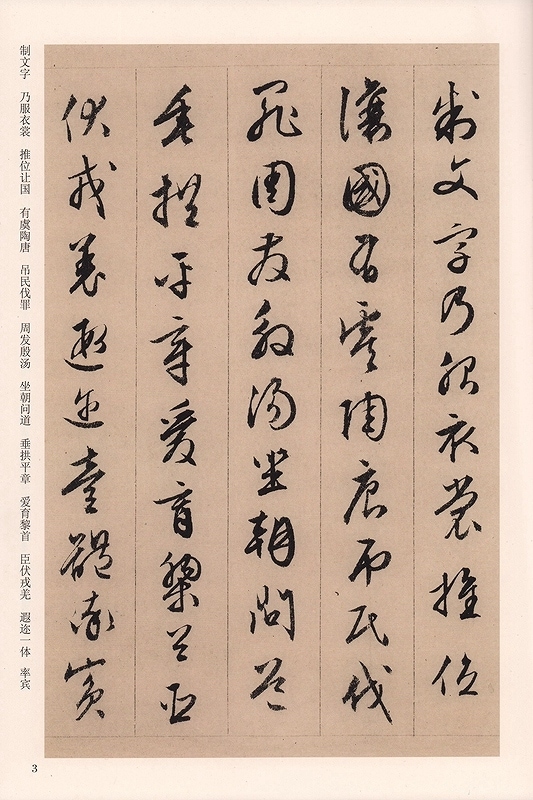 制文字乃服衣裳推位
讓國有虞陶唐吊民伐
罪周發殷湯坐朝問道
垂拱平章愛育黎首臣
伏戎羌遐迩壹體率賓
制文字 乃服衣裳 推位让国 有虞陶唐 吊民伐罪 周发殷汤 坐朝问道 垂拱平章 爱育黎首 臣伏戎羌 遐迩一体 率宾
3